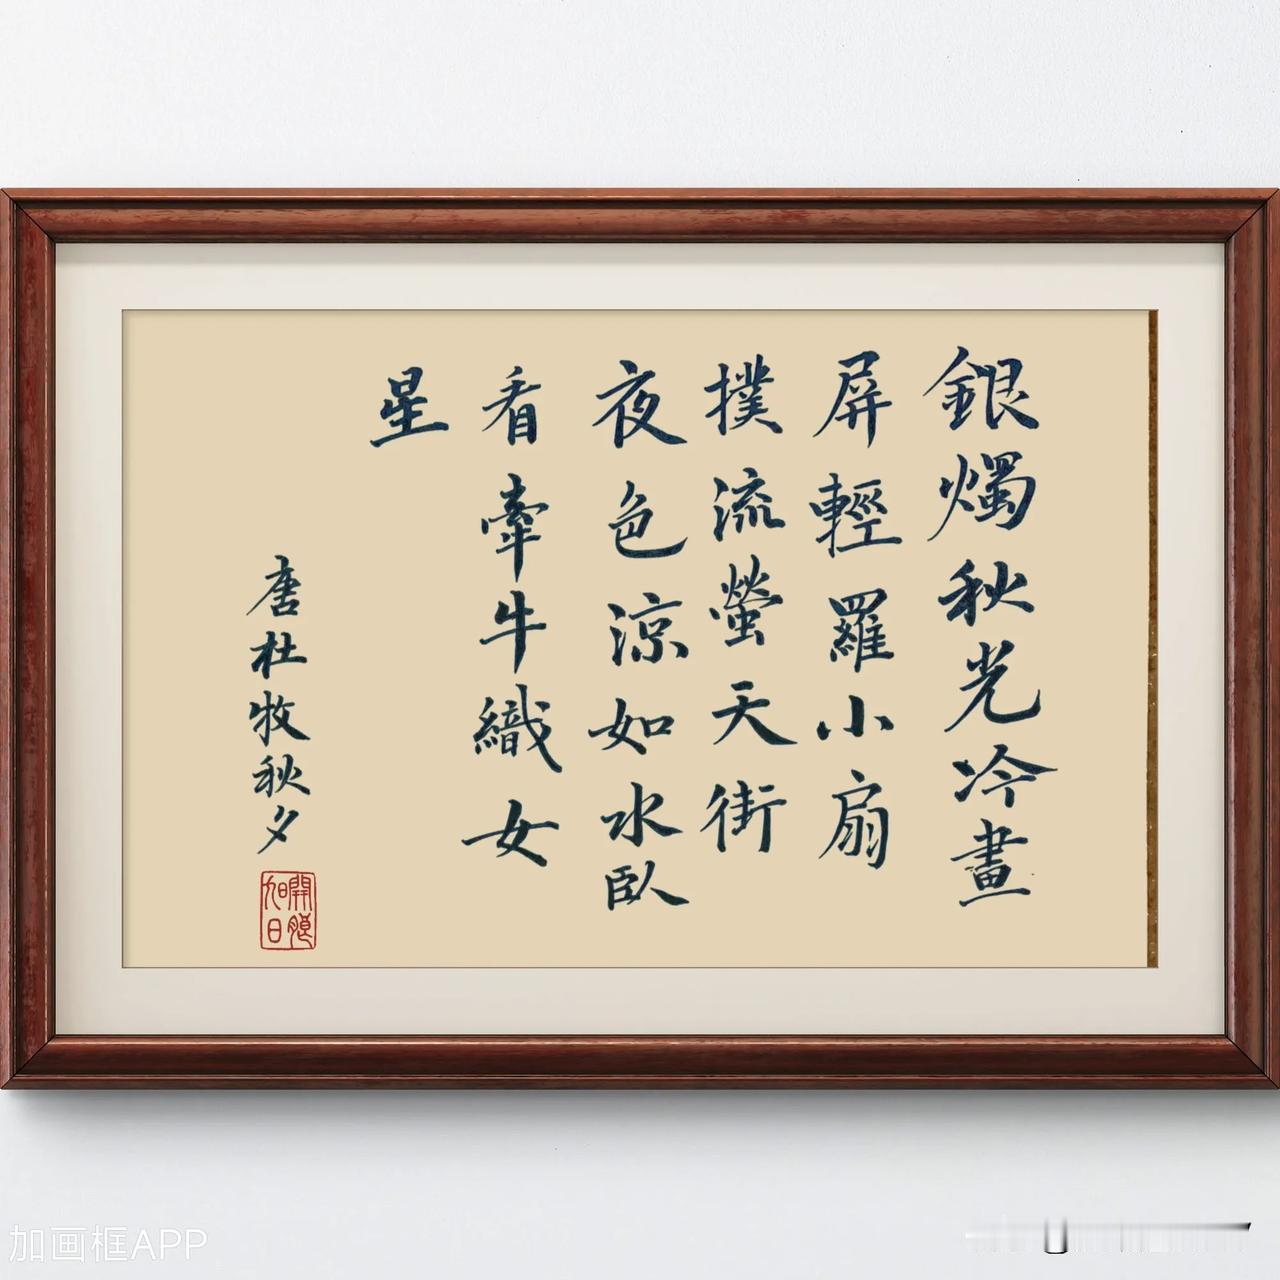 銀燭秋光冷畫
屏輕羅小扇
撲流螢天街
夜色涼如水臥
看牽牛織女
星
唐杜牧秋夕
加画框APP